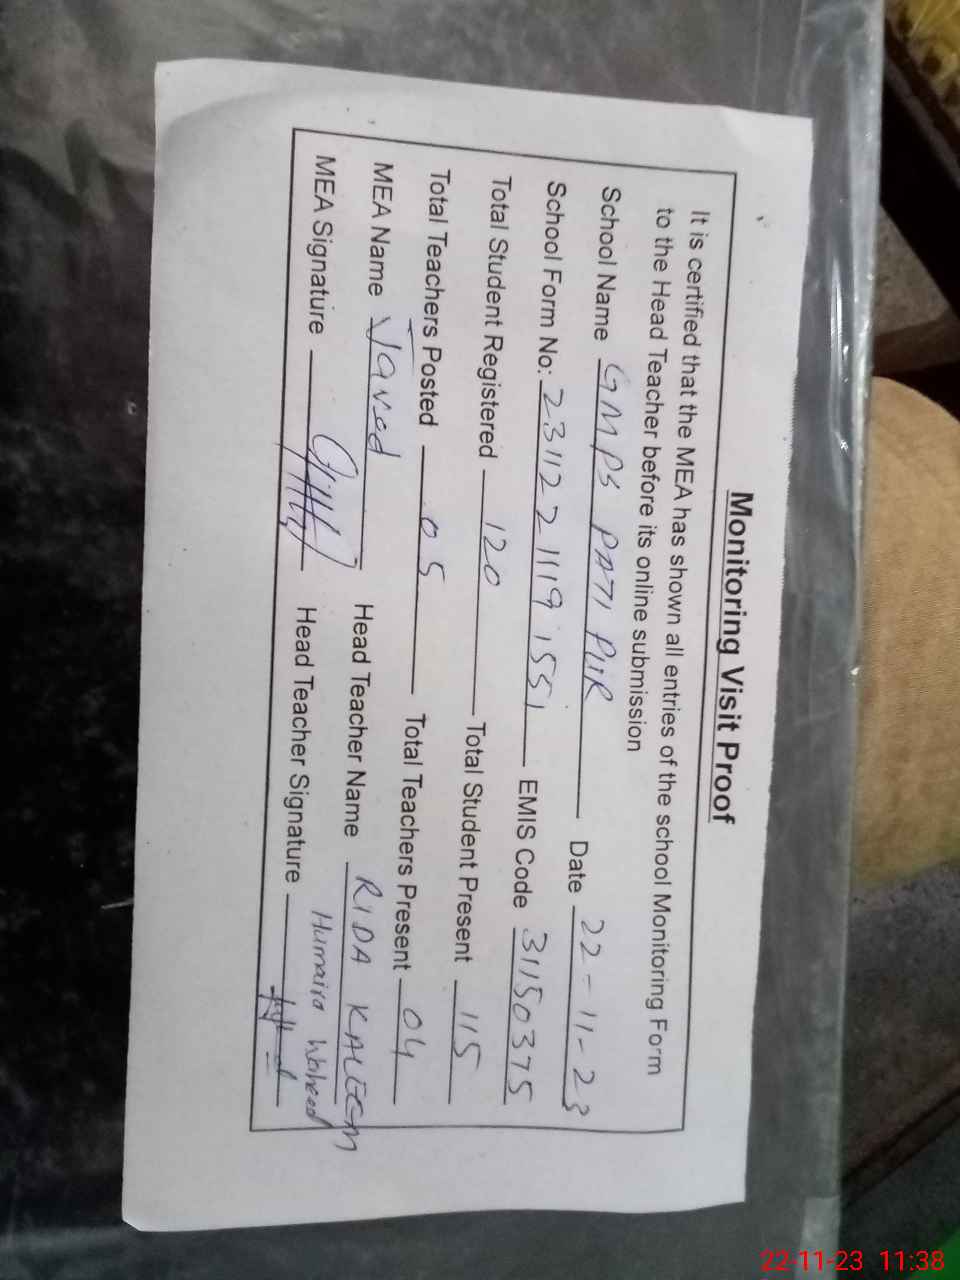 Monitoring Visit Proof
It is certified that the MEA has shown all entries of the school Monitoring Form
to the Head Teacher before its online submission
School Name GMPS PATI PUR Date 22-11-23
School Form No: 231122 1119 1551 EMIS Code 31150375
Total Student Registered 120 Total Student Present 115
Total Teachers Posted 05 Total Teachers Present 04
MEA Name Javed Head Teacher Name RIDA KALEEM
Humaira Waheed
MEA Signature Head Teacher Signature
22-11-23 11:38